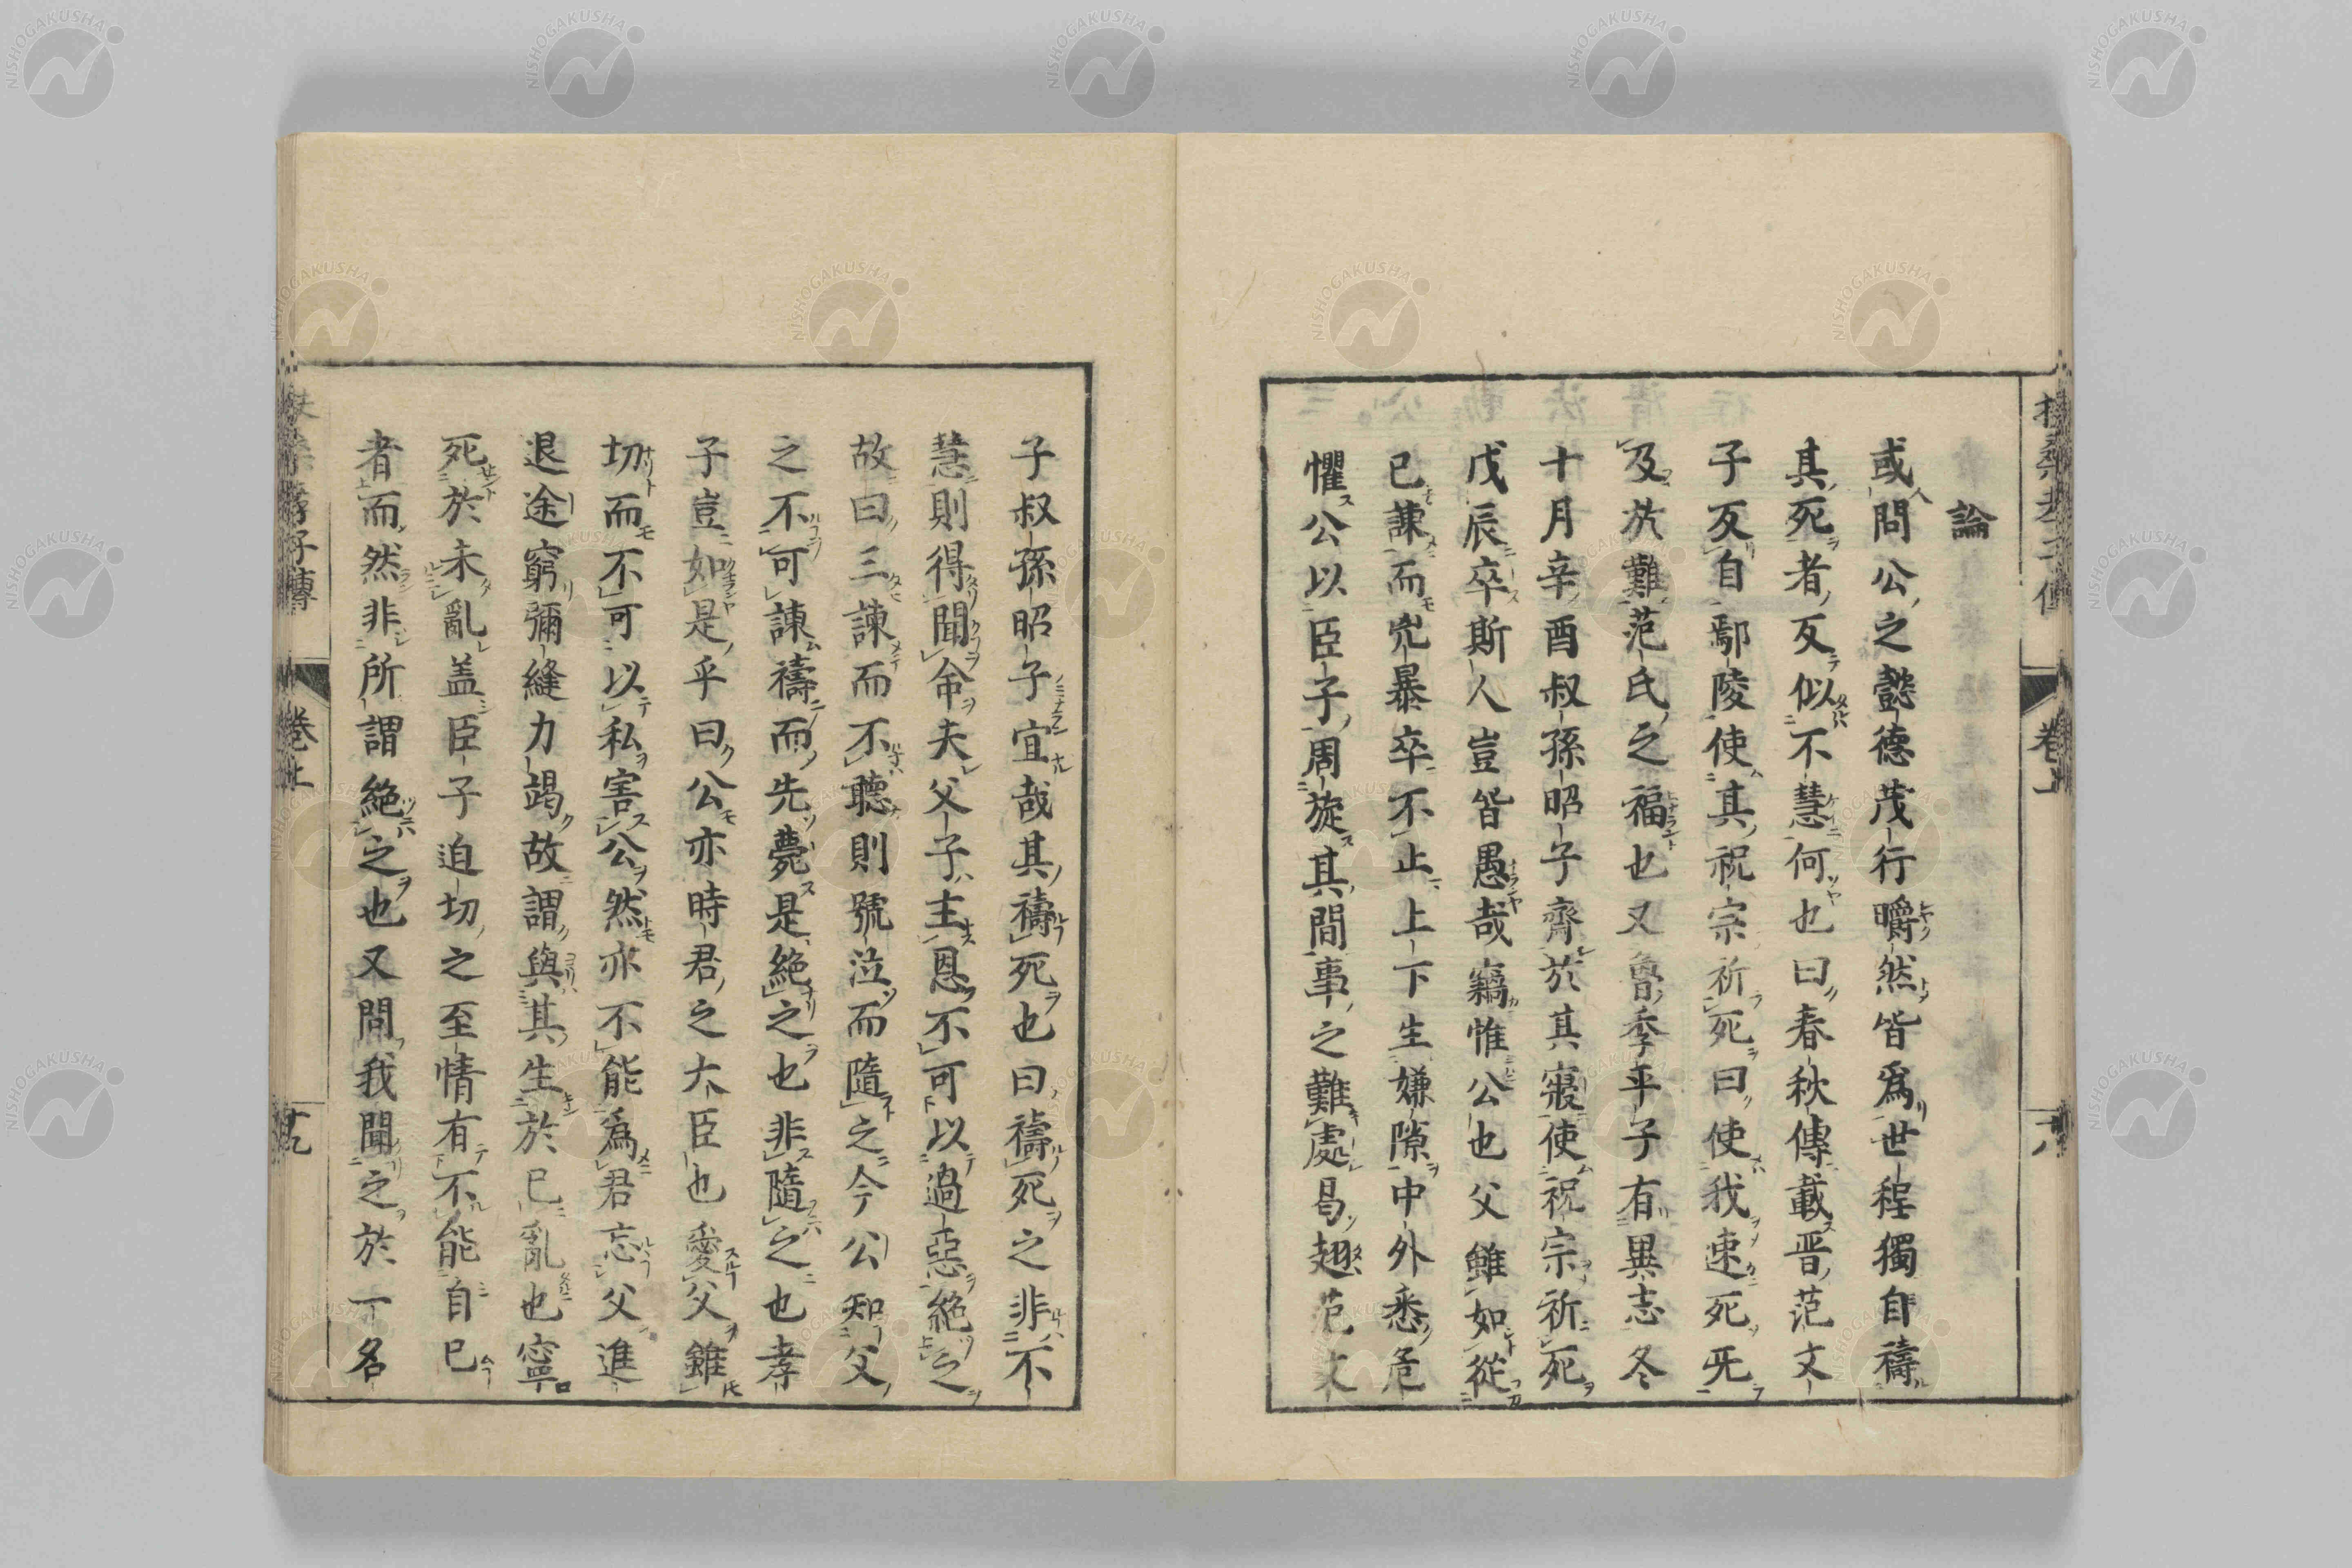 論
或問公之懿德茂行皭然皆爲世程獨自禱
其死者亙似不慧何也曰春秋傳載晋范文
子反自鄢陵使其祝宗祈死曰使我速死旡
及於難范氏之福也又魯季平子有異志冬
十月辛酉叔孫昭子齊於其寢使祝宗祈死
戊辰卒斯人豈皆愚哉竊惟公也父雖如從
已諫而兇暴卒不止上下生嫌隙中外悉危
懼公以臣子周旋其間事之難處曷翅范文
子叔孫昭子宜哉其禱死也曰禱死之非不
慧則得聞命夫父子主恩不可以過惡絶之
故曰三諫而不聽則號泣而隨之今公知父
之不可諫禱而先薨是絶之也非隨之也孝
子豈如是乎曰公亦時君之大臣也愛父雖
切而不可以私害公然亦不能爲君忘父進
退途窮彌縫力竭故謂與其生於已亂也寧
死於未亂盖臣子迫切之至情有不能自已
者而然非所謂絶之也又問我聞之於一名
卷上
十八
扶桑孝子傳
卷上
十九
NISHOGAKUSHA